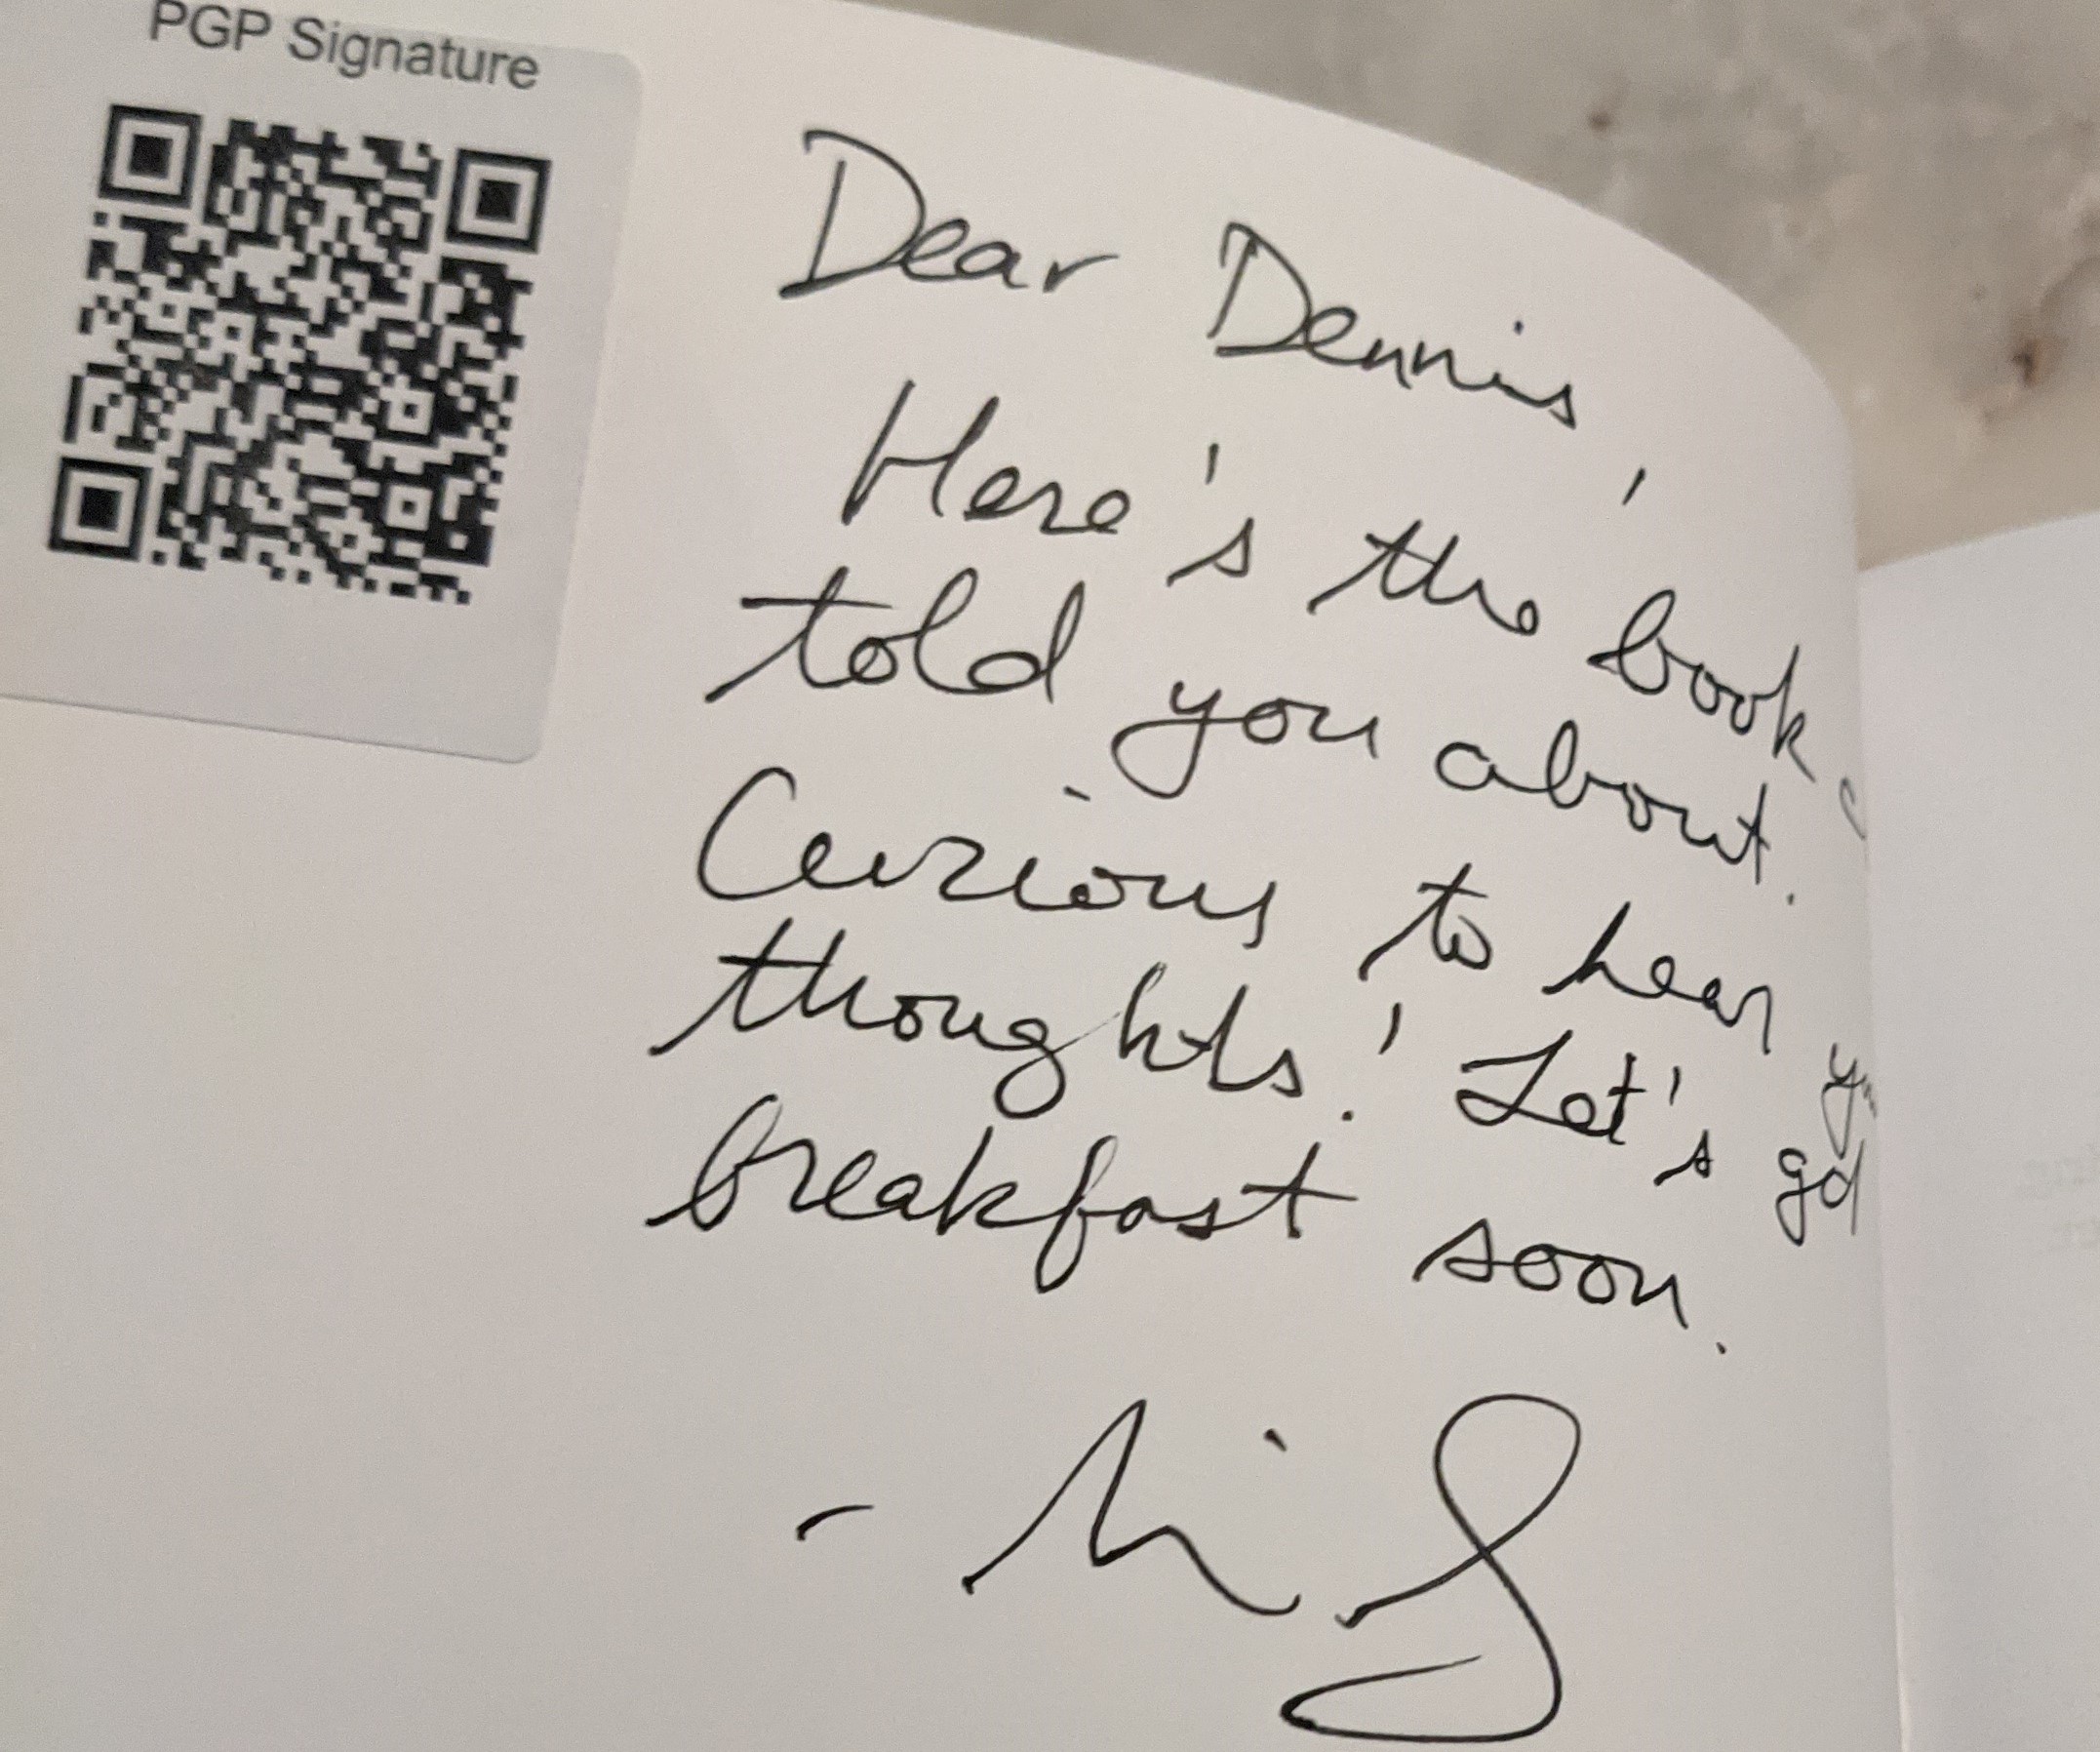 PGP Signature
Dear Dennis,
Here's the book
told you about.
Curious to hear
thoughts! Let's
breakfast soon.